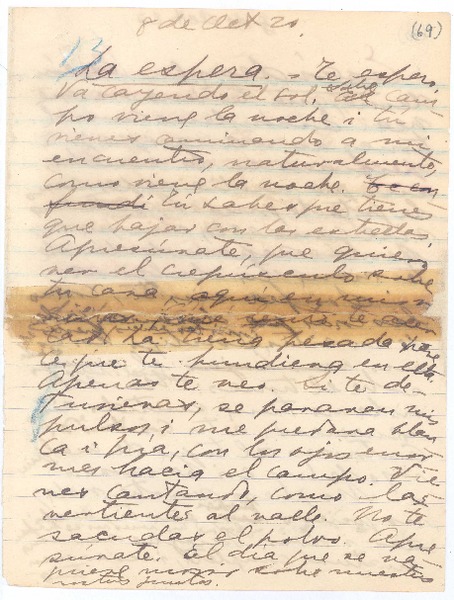 8 de Oct 20.
(69)
La espera. – Te espero.
Va cayendo el sol. sobre el cam-
po viene la noche i tú
vienes caminando a mi
encuentro, naturalmente,
como viene la noche. Te con
fundí tú sabes que tienes
que bajar con las estrellas.
Apresúrate, que quiero
ver el crepúsculo sobre
tu cara, aquí en
la tierra pesada para
te que te hundiera en ella.
Apenas te veo. Si te de-
tuvieras, se pararan mis
pulsos i me quedara blan
ca i fija, con los ojos enor
mes hacia el campo. Vie
nes cantando, como las
vertientes al valle. No te
sacudas el polvo. Apre
súrate. El día que se va
quiere morir sobre nuestros
rostros juntos.